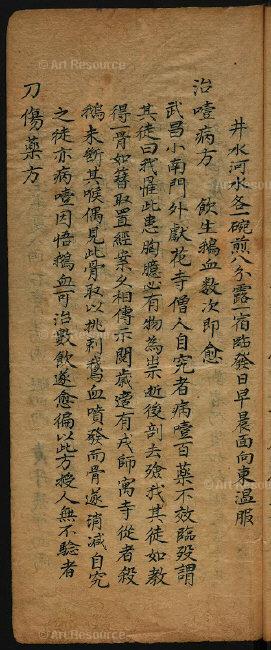 井水河水各一碗煎八分露一宿臨發日早晨面向東溫服
治噎病方 飲生鵝血数次即愈
武昌小南門外獻花寺僧人自究者病噎百藥不效臨殁謂
其徒曰我罹此患胸臆必有物為祟逝後剖去殮我其徒如教
得一骨如簪取置經案久相傳示閱歲適有戎師寓寺從者殺
鵝未斷其喉偶見此骨取以挑剌鵝血噴發而骨遂消滅自究
之徒亦病噎因悟鵝血可治數飲遂愈徧以此方授人無不驗者
刀傷藥方
© Art Resource
© Art Resource